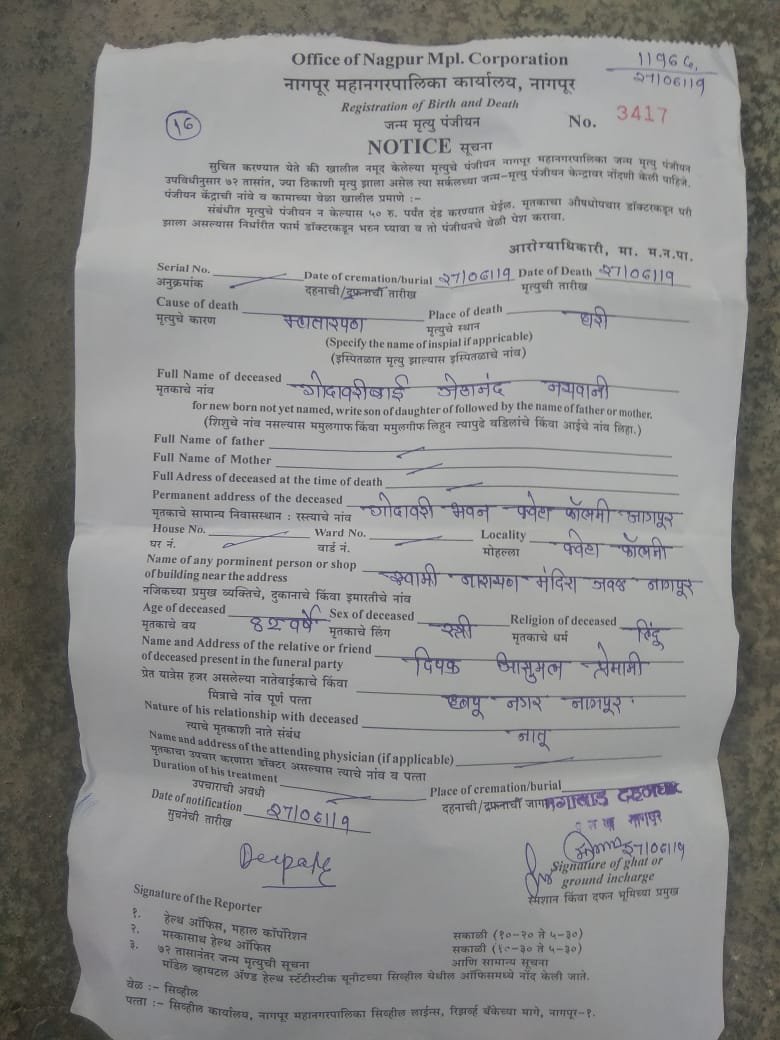 Office of Nagpur Mpl. Corporation
11966
27/06/19
नागपूर महानगरपालिका कार्यालय, नागपूर
Registration of Birth and Death
जन्म मृत्यु पंजीयन
No. 3417
१६
NOTICE सूचना
सुचित करण्यात येते की खालील नमूद केलेल्या मृत्युचे पंजीयन नागपूर महानगरपालिका जन्म मृत्यु पंजीयन
उपविधीनुसार ७२ तासांत, ज्या ठिकाणी मृत्यु झाला असेल त्या सर्कलच्या जन्म-मृत्यु पंजीयन केन्द्रावर नोंदणी केली पाहिजे.
पंजीयन केंद्राची नांवे व कामाच्या वेळा खालील प्रमाणे :-
संबंधीत मृत्युचे पंजीयन न केल्यास ५० रु. पर्यंत दंड करण्यात येईल. मृतकाचा औषधोपचार डॉक्टरकडून घरी
झाला असल्यास निर्धारीत फार्म डॉक्टरकडून भरुन घ्यावा व तो पंजीयनचे वेळी पेश करावा.
आरोग्याधिकारी, मा. म.न.पा.
Serial No. Date of cremation/burial 27/06/19 Date of Death 27/06/19
अनुक्रमांक दहनाची/दुफनाची तारीख मृत्युची तारीख
Cause of death म्हातारपण Place of death घरी
मृत्युचे कारण मृत्युचे स्थान
(Specify the name of inspial if appricable)
(इस्पितळात मृत्यु झाल्यास इस्पितळाचे नांव)
Full Name of deceased गोदावरीबाई जेठानंद
मृतकाचे नांव
for new born not yet named, write son of daughter of followed by the name of father or mother.
(शिशुचे नांव नसल्यास ममुलगाफ किंवा ममुलगीफ लिहुन त्यापुढे वडिलांचे किंवा आईचे नांव लिहा.)
Full Name of father
Full Name of Mother
Full Adress of deceased at the time of death
Permanent address of the deceased गोदावरी भवन क्वेटा कॉलनी नागपूर
मृतकाचे सामान्य निवासस्थान : रस्त्याचे नांव
House No. Ward No. Locality क्वेटा कॉलनी
घर नं. वार्ड नं. मोहल्ला
Name of any porminent person or shop
of building near the address स्वामी नारायण मंदिरा जवळ नागपूर
नजिकच्या प्रमुख व्यक्तिचे, दुकानाचे किंवा इमारतीचे नांव
Age of deceased ८२ वर्षे Sex of deceased स्त्री Religion of deceased हिंदू
मृतकाचे वय मृतकाचे लिंग मृतकाचे धर्म
Name and Address of the relative or friend
of deceased present in the funeral party दिपक आसुमल प्रेमामी
प्रेत यात्रेस हजर असलेल्या नातेवाईकाचे किंवा
मित्राचे नांव पूर्ण पत्ता नगर नागपूर
Nature of his relationship with deceased नातू
त्याचे मृतकाशी नाते संबंध
Name and address of the attending physician (if applicable)
मृतकाचा उपचार करणारा डॉक्टर असल्यास त्याचे नांव व पत्ता
Duration of his treatment Place of cremation/burial
उपचाराची अवधी दहनाची/द्रफनाची जागा
Date of notification 27/06/19 नागपुर
सुचनेची तारीख
27/06/19
Deepak
Signature of ghat or
ground incharge
Signature of the Reporter स्मशान किंवा दफन भूमिच्या प्रमुख
१. हेल्थ ऑफिस, महाल कॉर्पोरेशन सकाळी (१०-२० ते ५-३०)
२. मस्कासाथ हेल्थ ऑफिस सकाळी (१०-३० ते ५-३०)
३. ७२ तासानंतर जन्म मृत्युची सूचना आणि सामान्य सूचना
मॉडेल व्हायटल ॲण्ड हेल्थ स्टॅटीस्टीक यूनीटच्या सिव्हील येथील ऑफिसमध्ये नोंद केली जाते.
वेळ :- सिव्हील
पत्ता :- सिव्हील कार्यालय, नागपूर महानगरपालिका सिव्हील लाईन्स, रिझर्व्ह बँकेच्या मागे, नागपूर-१.